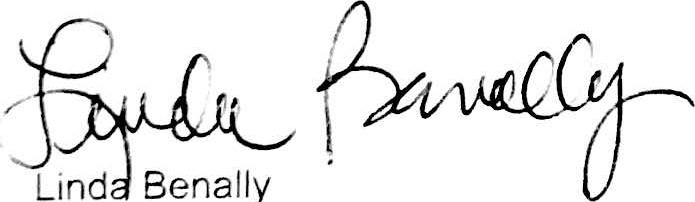 Lynda Benally
Linda Benally